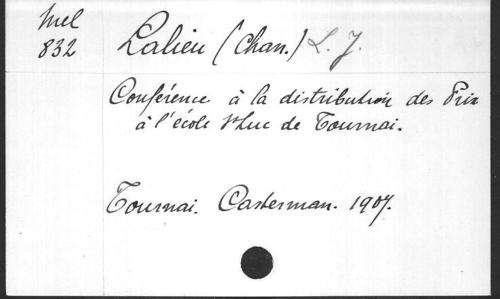 Mel
832
Lalieu (Chan.) L. J.
Conférence à la distribution des Prix
à l'école St Luc de Tournai.
Tournai. Casterman. 1907.